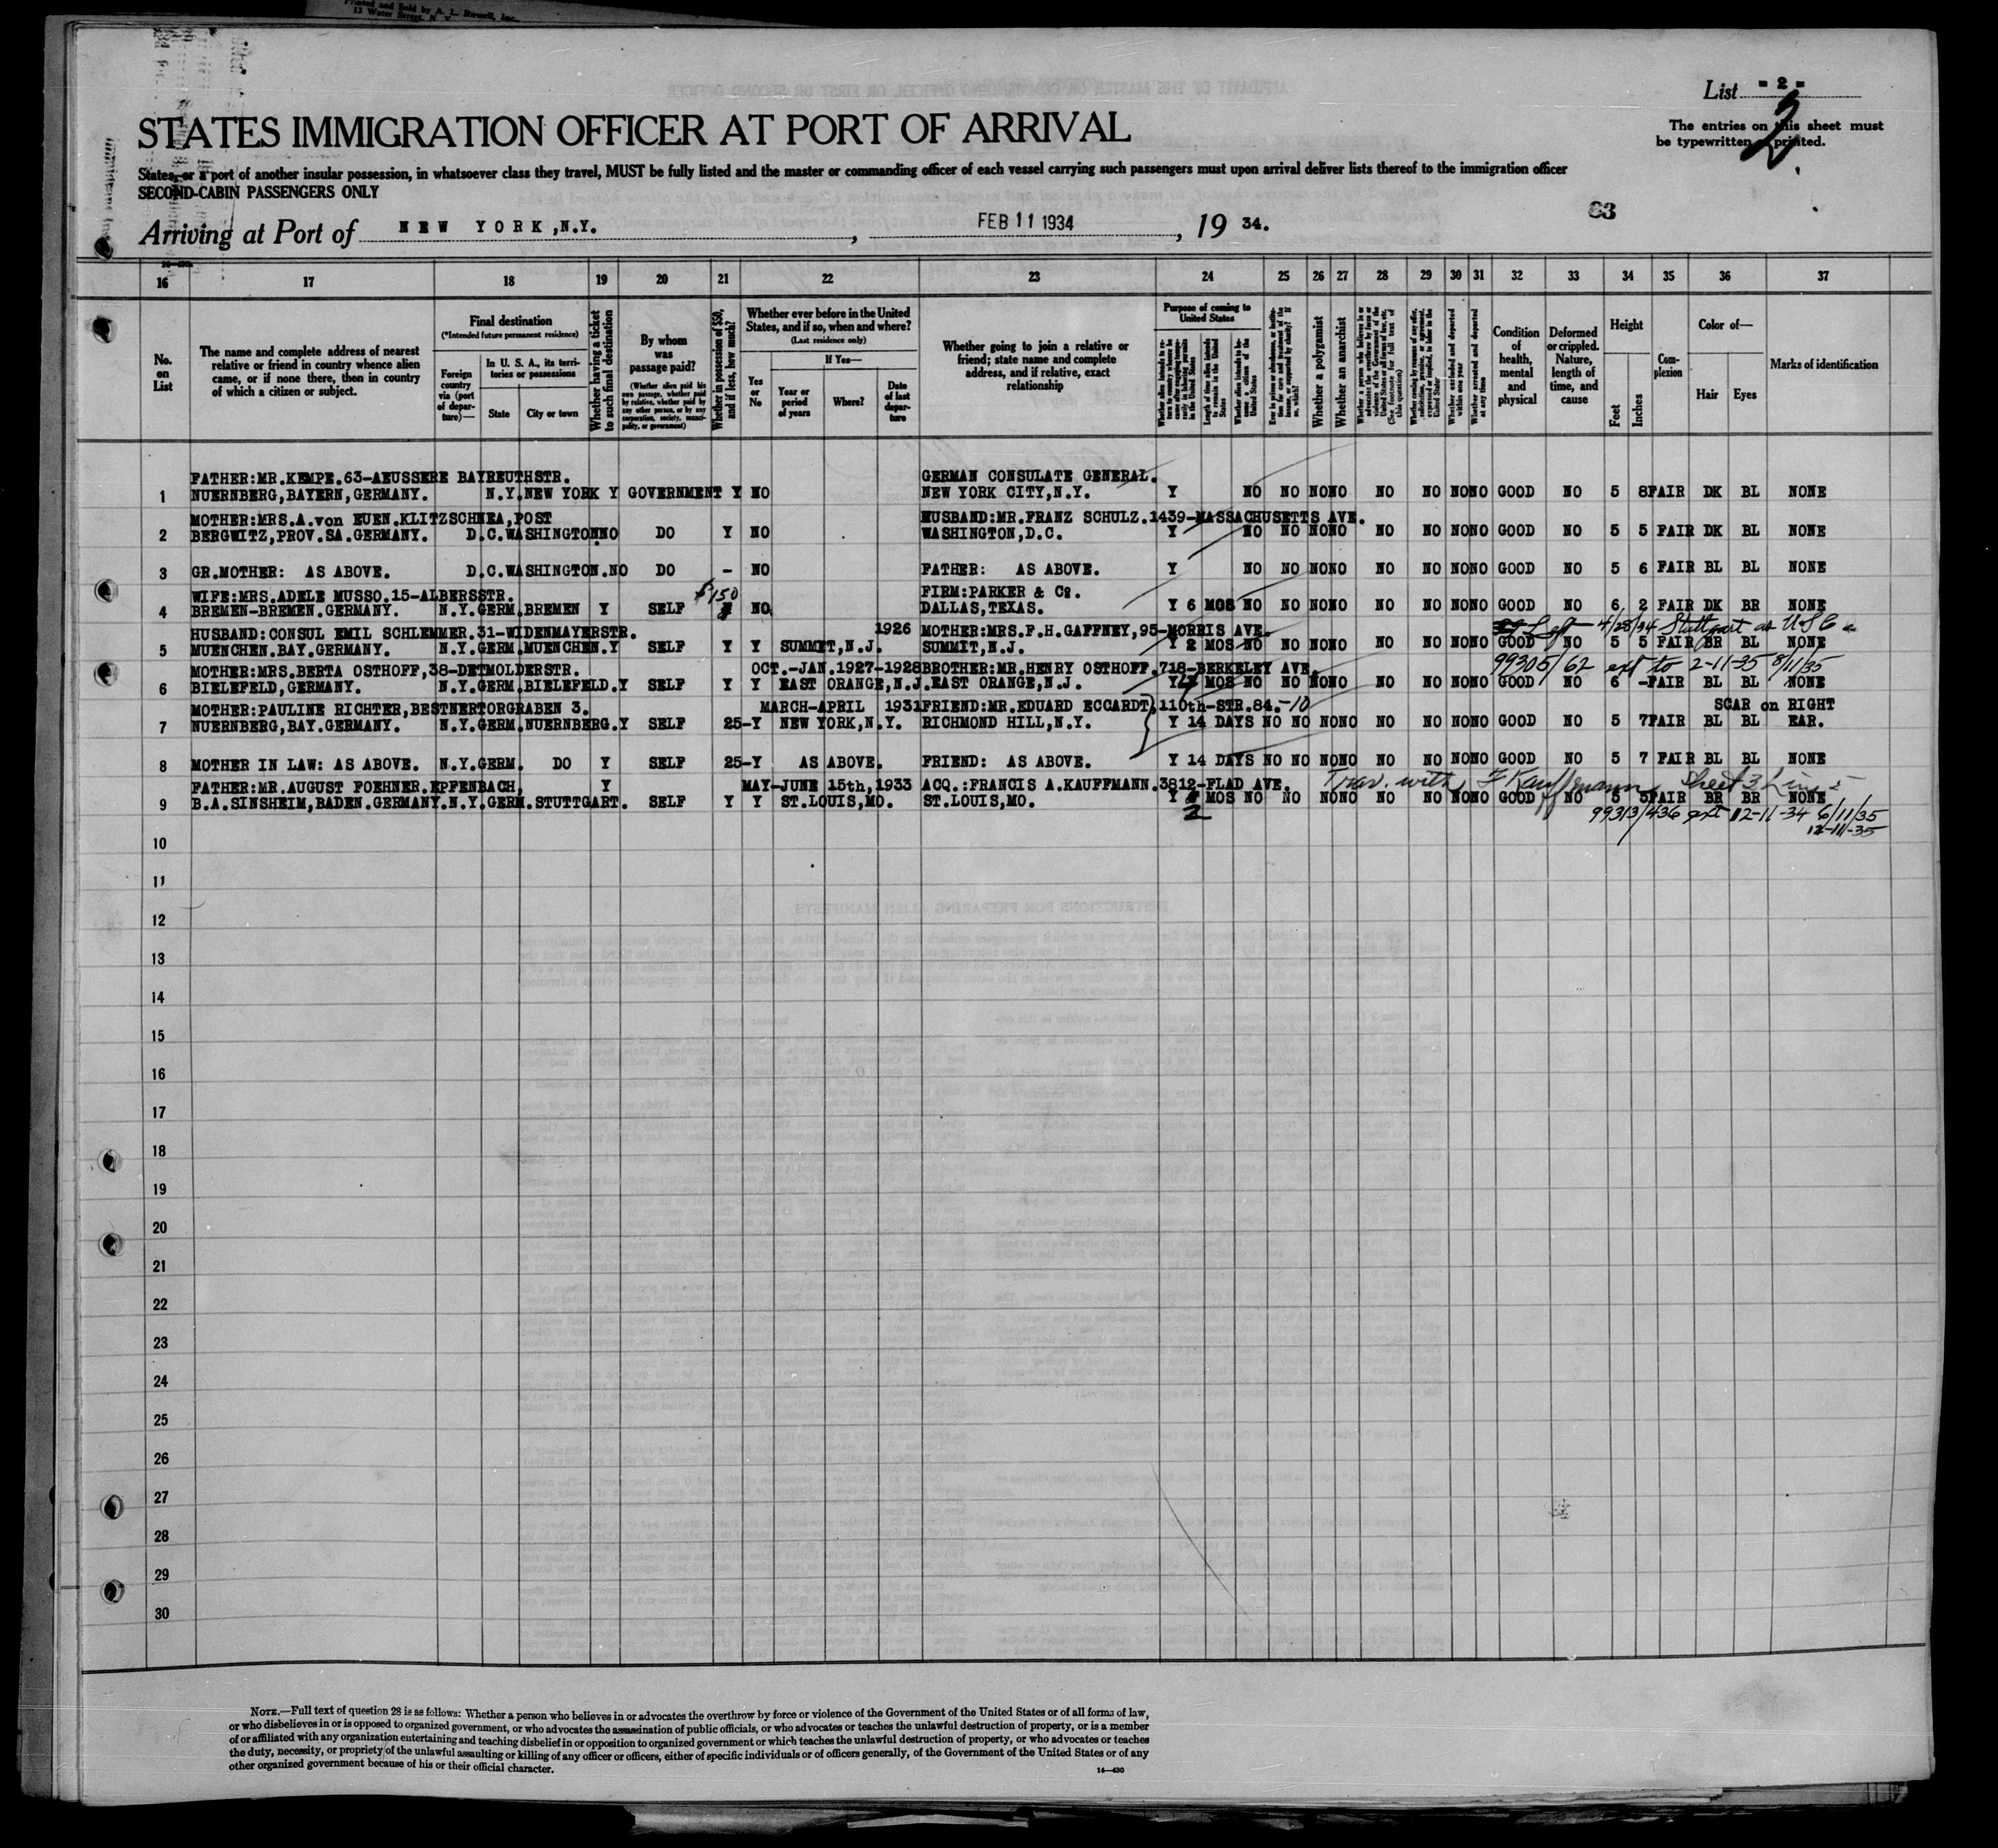 Printed and Sold by A. L. Russell, Inc.
List - 2 -
2
STATES IMMIGRATION OFFICER AT PORT OF ARRIVAL
The entries on this sheet must
be typewritten or printed.
States, or a port of another insular possession, in whatsoever class they travel, MUST be fully listed and the master or commanding officer of each vessel carrying such passengers must upon arrival deliver lists thereof to the immigration officer
SECOND-CABIN PASSENGERS ONLY
63
Arriving at Port of NEW YORK,N.Y. , FEB 11 1934 , 19 34.
16 17 18 19 20 21 22 23 24 25 26 27 28 29 30 31 32 33 34 35 36 37
No. on List
The name and complete address of nearest relative or friend in country whence alien came, or if none there, then in country of which a citizen or subject.
Final destination
(*Intended future permanent residence)
Foreign country via (port of departure)—
In U. S. A., its territories or possessions
State
City or town
Whether having a ticket to such final destination
By whom was passage paid?
(Whether alien paid his own passage, whether paid by relative, whether paid by any other person, or by any corporation, society, municipality, or government)
Whether in possession of $50, and if less, how much?
Whether ever before in the United States, and if so, when and where?
(Last residence only)
Yes or No
If Yes—
Year or period of years
Where?
Date of last departure
Whether going to join a relative or friend; state name and complete address, and if relative, exact relationship
Purpose of coming to United States
Length of time alien intends to remain in the United States
Whether alien intends to become a citizen of the United States
Whether a polygamist
Whether an anarchist
Whether excluded and deported within one year
Whether arrested and deported at any time
Condition of health, mental and physical
Deformed or crippled. Nature, length of time, and cause
Height
Feet
Inches
Complexion
Color of—
Hair
Eyes
Marks of identification
FATHER:MR.KEMPE.63-AEUSSERE BAYREUTHSTR. GERMAN CONSULATE GENERAL.
1 NUERNBERG,BAYERN,GERMANY. N.Y.NEW YORK Y GOVERNMENT Y NO NEW YORK CITY,N.Y. Y NO NO NO NO NO NO NO NO GOOD NO 5 8 FAIR DK BL NONE
MOTHER:MRS.A.von EUEN.KLITZSCHNEA,POST HUSBAND:MR.FRANZ SCHULZ.1439-MASSACHUSETTS AVE.
2 BERGWITZ,PROV.SA.GERMANY. D.C.WASHINGTON NO DO Y NO WASHINGTON,D.C. Y NO NO NO NO NO NO NO NO GOOD NO 5 5 FAIR DK BL NONE
3 GR.MOTHER: AS ABOVE. D.C.WASHINGTON.NO DO - NO FATHER: AS ABOVE. Y NO NO NO NO NO NO NO NO GOOD NO 5 6 FAIR BL BL NONE
WIFE:MRS.ADELE MUSSO.15-ALBERSSTR. $150 FIRM:PARKER & Co.
4 BREMEN-BREMEN.GERMANY. N.Y.GERM.BREMEN Y SELF NO DALLAS,TEXAS. Y 6 MOS NO NO NO NO NO NO NO NO GOOD NO 6 2 FAIR DK BR NONE
HUSBAND:CONSUL EMIL SCHLEMMER.31-WIDENMAYERSTR. 1926 MOTHER:MRS.F.H.GAFFNEY,95-MORRIS AVE. Left 4/28/34 Stuttgart as USC
5 MUENCHEN.BAY.GERMANY. N.Y.GERM.MUENCHEN.Y SELF Y Y SUMMIT,N.J. SUMMIT,N.J. Y 2 MOS NO NO NO NO NO NO NO NO GOOD NO 5 5 FAIR BR BL NONE
MOTHER:MRS.BERTA OSTHOFF,38-DETMOLDERSTR. OCT.-JAN.1927-1928 BROTHER:MR.HENRY OSTHOFF.718-BERKELEY AVE. 99305/62 ext to 2-11-35 8/11/35
6 BIELEFELD,GERMANY. N.Y.GERM.BIELEFELD.Y SELF Y Y EAST ORANGE,N.J. EAST ORANGE,N.J. Y MOS NO NO NO NO NO NO NO NO GOOD NO 6 - FAIR BL BL NONE
MOTHER:PAULINE RICHTER,BESTNERTORGRABEN 3. MARCH-APRIL 1931 FRIEND:MR.EDUARD ECCARDT,110th-STR.84.-10 SCAR on RIGHT
7 NUERNBERG,BAY.GERMANY. N.Y.GERM.NUERNBERG.Y SELF 25- Y NEW YORK,N.Y. RICHMOND HILL,N.Y. Y 14 DAYS NO NO NO NO NO NO NO NO GOOD NO 5 7 FAIR BL BL EAR.
8 MOTHER IN LAW: AS ABOVE. N.Y.GERM. DO Y SELF 25- Y AS ABOVE. FRIEND: AS ABOVE. Y 14 DAYS NO NO NO NO NO NO NO NO GOOD NO 5 7 FAIR BL BL NONE
FATHER:MR.AUGUST POEHNER.EPFENBACH, Y MAY-JUNE 15th,1933 ACQ.:FRANCIS A.KAUFFMANN.3812-FLAD AVE. Trav. with F Kauffmann Sheet 3 Line 5
9 B.A.SINSHEIM,BADEN.GERMANY.N.Y.GERM.STUTTGART. SELF Y Y ST.LOUIS,MO. ST.LOUIS,MO. Y MOS NO NO NO NO NO NO NO NO GOOD NO 5 5 FAIR BR BR NONE
2 99313/436 ext 12-11-34 6/11/35
12-11-35
10
11
12
13
14
15
16
17
18
19
20
21
22
23
24
25
26
27
28
29
30
NOTE.—Full text of question 28 is as follows: Whether a person who believes in or advocates the overthrow by force or violence of the Government of the United States or of all forms of law,
or who disbelieves in or is opposed to organized government, or who advocates the assassination of public officials, or who advocates or teaches the unlawful destruction of property, or is a member
of or affiliated with any organization entertaining and teaching disbelief in or opposition to organized government or which teaches the unlawful destruction of property, or who advocates or teaches
the duty, necessity, or propriety of the unlawful assaulting or killing of any officer or officers, either of specific individuals or of officers generally, of the Government of the United States or of any
other organized government because of his or their official character.
14—430